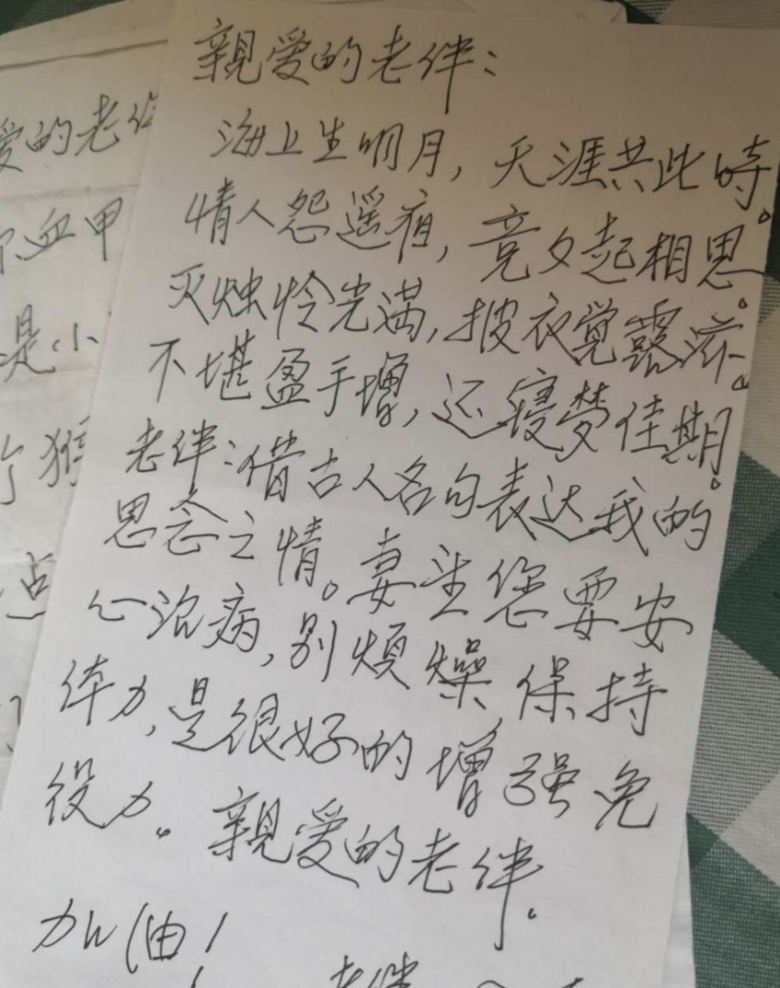 親爱的老伴：
海上生明月，天涯共此时。
情人怨遥夜，竟夕起相思。
灭烛怜光满，披衣覺露滋。
不堪盈手增，还寝梦佳期。
老伴：借古人名句表达我的
思念之情。妻望您要安
心治病，别煩燥，保持
体力，是很好的增强免
役力。親爱的老伴。
加油！
老伴
爱的老伴
血甲
是小
个猴
点